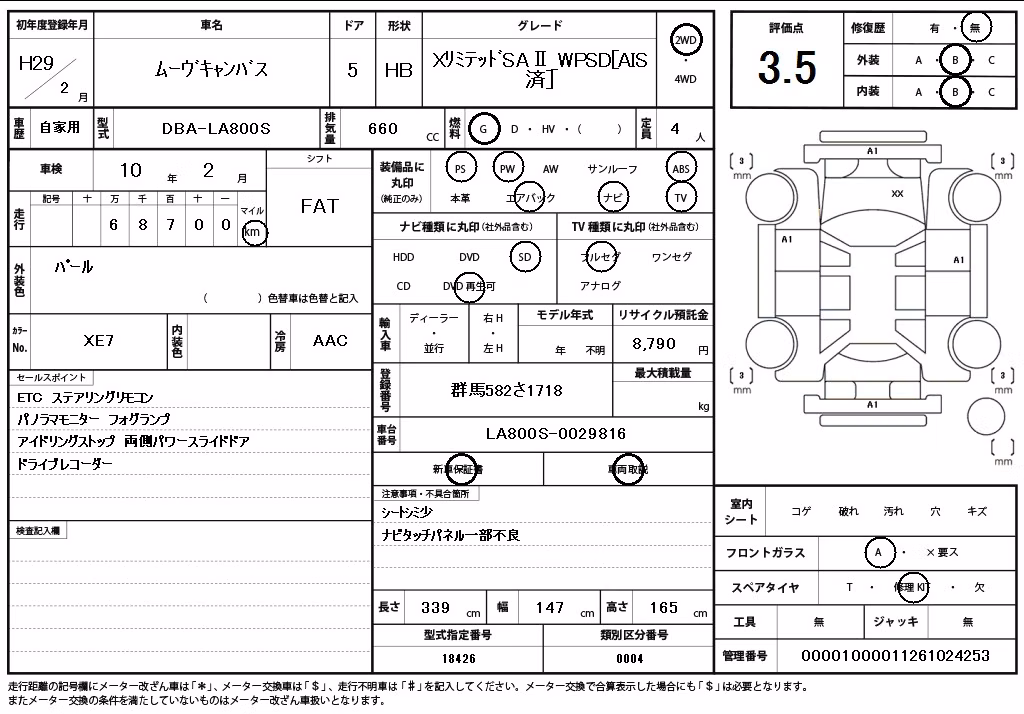 初年度登録年月 車名 ドア 形状 グレード
H29 2 月 ムーヴキャンバス 5 HB XリミテッドSAⅡ WPSD[AIS済] 2WD 4WD
車歴 自家用 型式 DBA-LA800S 排気量 660 CC 燃料 G D ・ HV ・ ( ) 定員 4 人
車検 10 年 2 月 シフト FAT
走行 記号 十 万 千 百 十 一 マイル
6 8 7 0 0 km
外装色 パール
( ) 色替車は色替と記入
カラーNo. XE7 内装色 冷房 AAC
セールスポイント
ETC ステアリングリモコン
パノラマモニター フォグランプ
アイドリングストップ 両側パワースライドドア
ドライブレコーダー
検査記入欄
装備品に丸印 (純正のみ) PS PW AW サンルーフ ABS
本革 エアバック ナビ TV
ナビ種類に丸印(社外品含む) TV種類に丸印(社外品含む)
HDD DVD SD フルセグ ワンセグ
CD DVD再生可 アナログ
輸入車 ディーラー ・ 並行 右H ・ 左H モデル年式 年 不明 リサイクル預託金 8,790 円
登録番号 群馬582さ1718 最大積載量 kg
車台番号 LA800S-0029816
新車保証書 車両取説
注意事項・不具合箇所
シートシミ少
ナビタッチパネル一部不良
長さ 339 cm 幅 147 cm 高さ 165 cm
型式指定番号 類別区分番号
18426 0004
評価点 3.5
修復歴 有 ・ 無
外装 A ・ B ・ C
内装 A ・ B ・ C
A1
3 mm 3 mm
XX
A1 A1
3 mm 3 mm
A1
mm
室内シート コゲ 破れ 汚れ 穴 キズ
フロントガラス A ・ ×要ス
スペアタイヤ T ・ 修理KIT ・ 欠
工具 無 ジャッキ 無
管理番号 00001000011261024253
走行距離の記号欄にメーター改ざん車は「＊」、メーター交換車は「＄」、走行不明車は「＃」を記入してください。メーター交換で合算表示した場合にも「＄」は必要となります。
またメーター交換の条件を満たしていないものはメーター改ざん車扱いとなります。